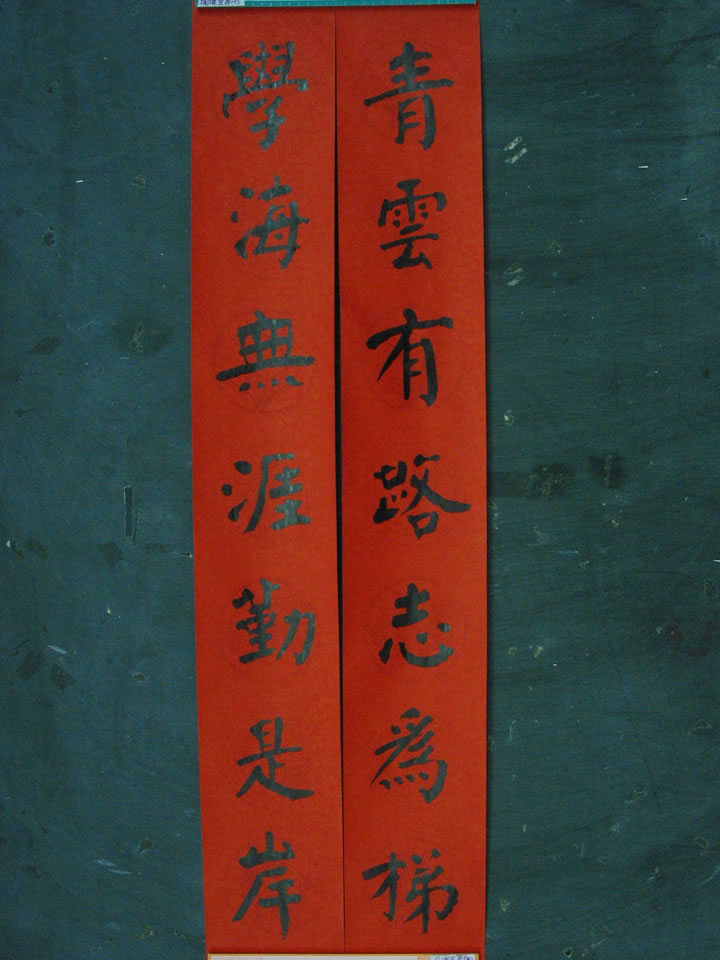 青雲有路志為梯
學海無涯勤是岸